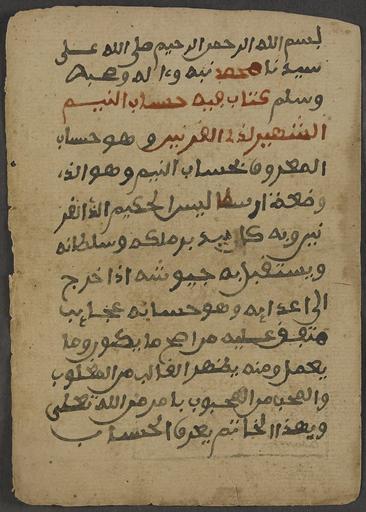 بسم الله الرحمن الرحيم صلى الله على
سيدنا محمد نبيه وءاله وصحبه
وسلم كتاب فيه حساب النيم
الشهير لذي القرنين وهو حساب
المعروف بحساب النيم وهو الذي
وضعه ارسطاليس الحكيم لذا القر
نين وبه كان يدبر ملكه وسلطانه
ويستقبل به جيوشه اذا خرج
الى اعدايه وهو حساب عجايب
متفق عليه من اصح ما يكون وما
يعمل ومنه يظهر الغالب من المغلوب
والمحب من المحبوب بامر من الله تعلى
وبهذا الخاتم يعرف الحساب